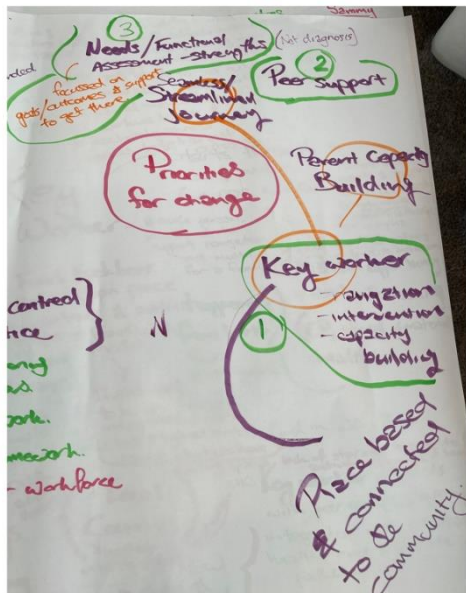 Sammy
3
Needs/Functional
Assessment - strengths
(Not diagnosis)
focussed on
goals/outcomes & support
to get there
Seamless/
Streamlined
Journey
2
Peer support
Priorities
for change
Parent Capacity
Building
Key worker
- intervention
- capacity
building
1
centred
N
work.
- workforce
Place based
& connected
to the
community.